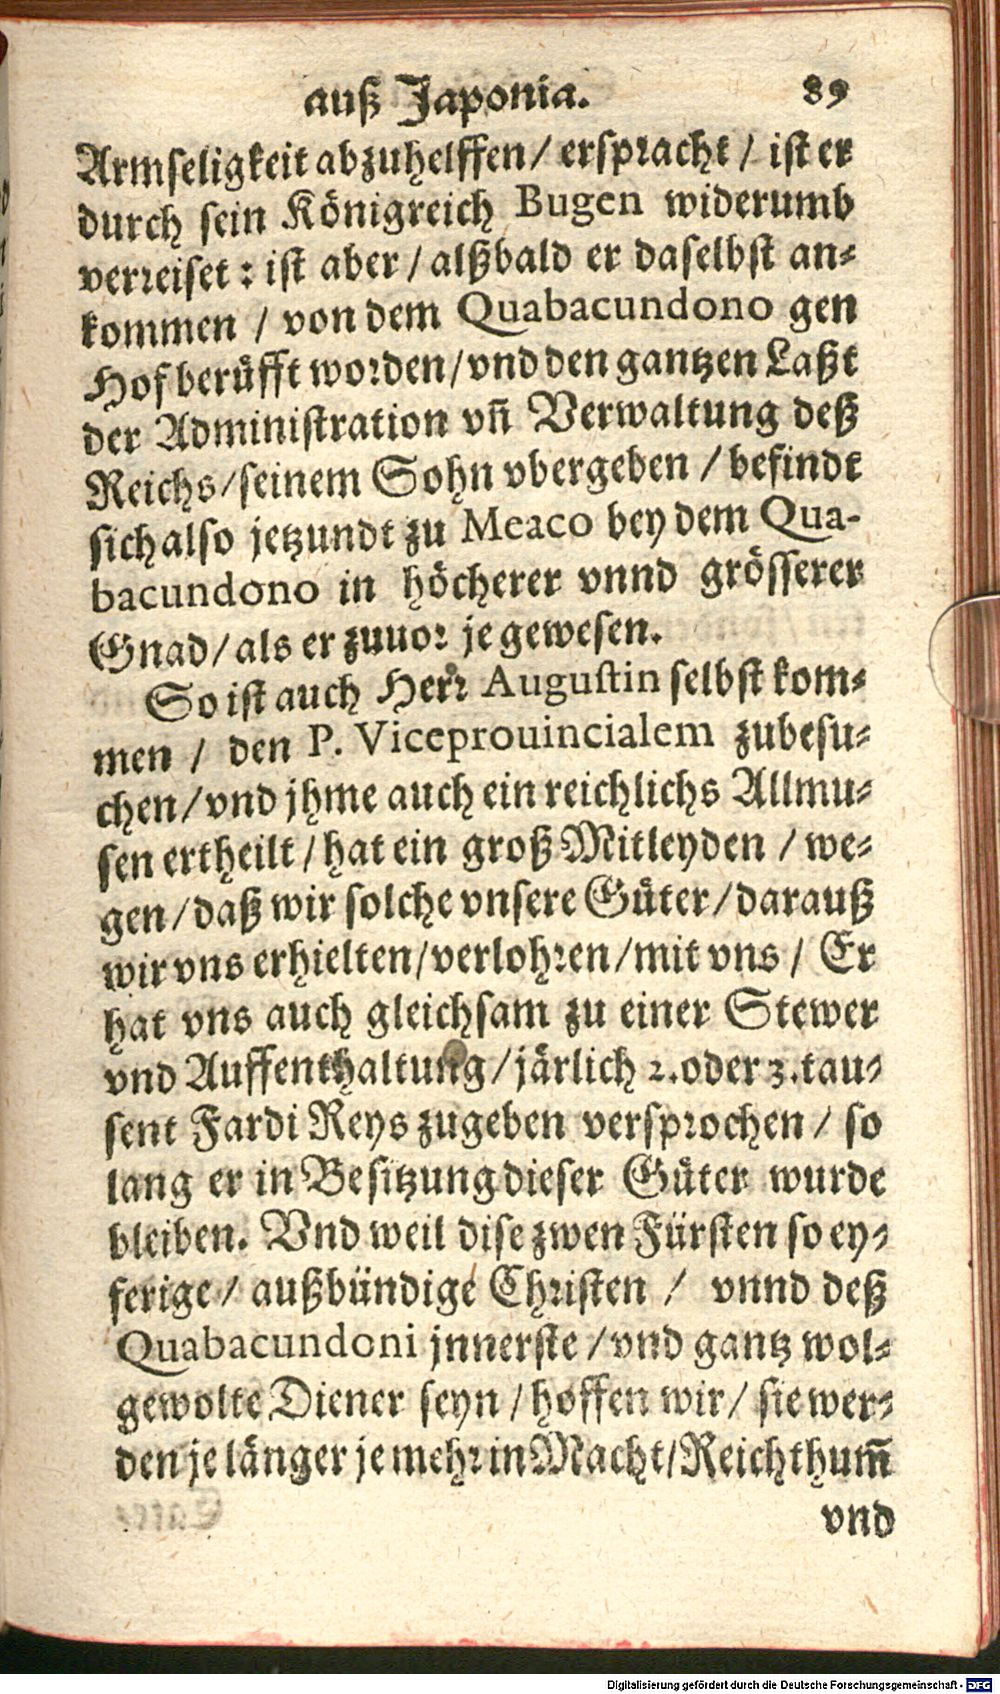 auß Japonia. 89
Armseligkeit abzuhelffen / erspracht / ist er
durch sein Königreich Bugen widerumb
verreiset : ist aber / alßbald er daselbst an-
kommen / von dem Quabacundono gen
Hof berüfft worden / vnd den gantzen Laßt
der Administration vñ Verwaltung deß
Reichs / seinem Sohn vbergeben / befindt
sich also jetzundt zu Meaco bey dem Qua-
bacundono in höcherer vnnd grösserer
Gnad / als er zuuor je gewesen.
So ist auch Herr Augustin selbst kom-
men / den P. Viceprouincialem zubesu-
chen / vnd jhme auch ein reichlichs Allmu-
sen ertheilt / hat ein groß Mitleyden / we-
gen / daß wir solche vnsere Güter / darauß
wir vns erhielten / verlohren / mit vns / Er
hat vns auch gleichsam zu einer Stewer
vnd Auffenthaltung / järlich 2. oder 3. tau-
sent Fardi Reys zugeben versprochen / so
lang er in Besitzung dieser Güter wurde
bleiben. Vnd weil dise zwen Fürsten so ey-
ferige / außbündige Christen / vnnd deß
Quabacundoni jnnerste / vnd gantz wol-
gewolte Diener seyn / hoffen wir / sie wer-
den je länger je mehr in Macht / Reichthum̃
vnd
Digitalisierung gefördert durch die Deutsche Forschungsgemeinschaft - DFG